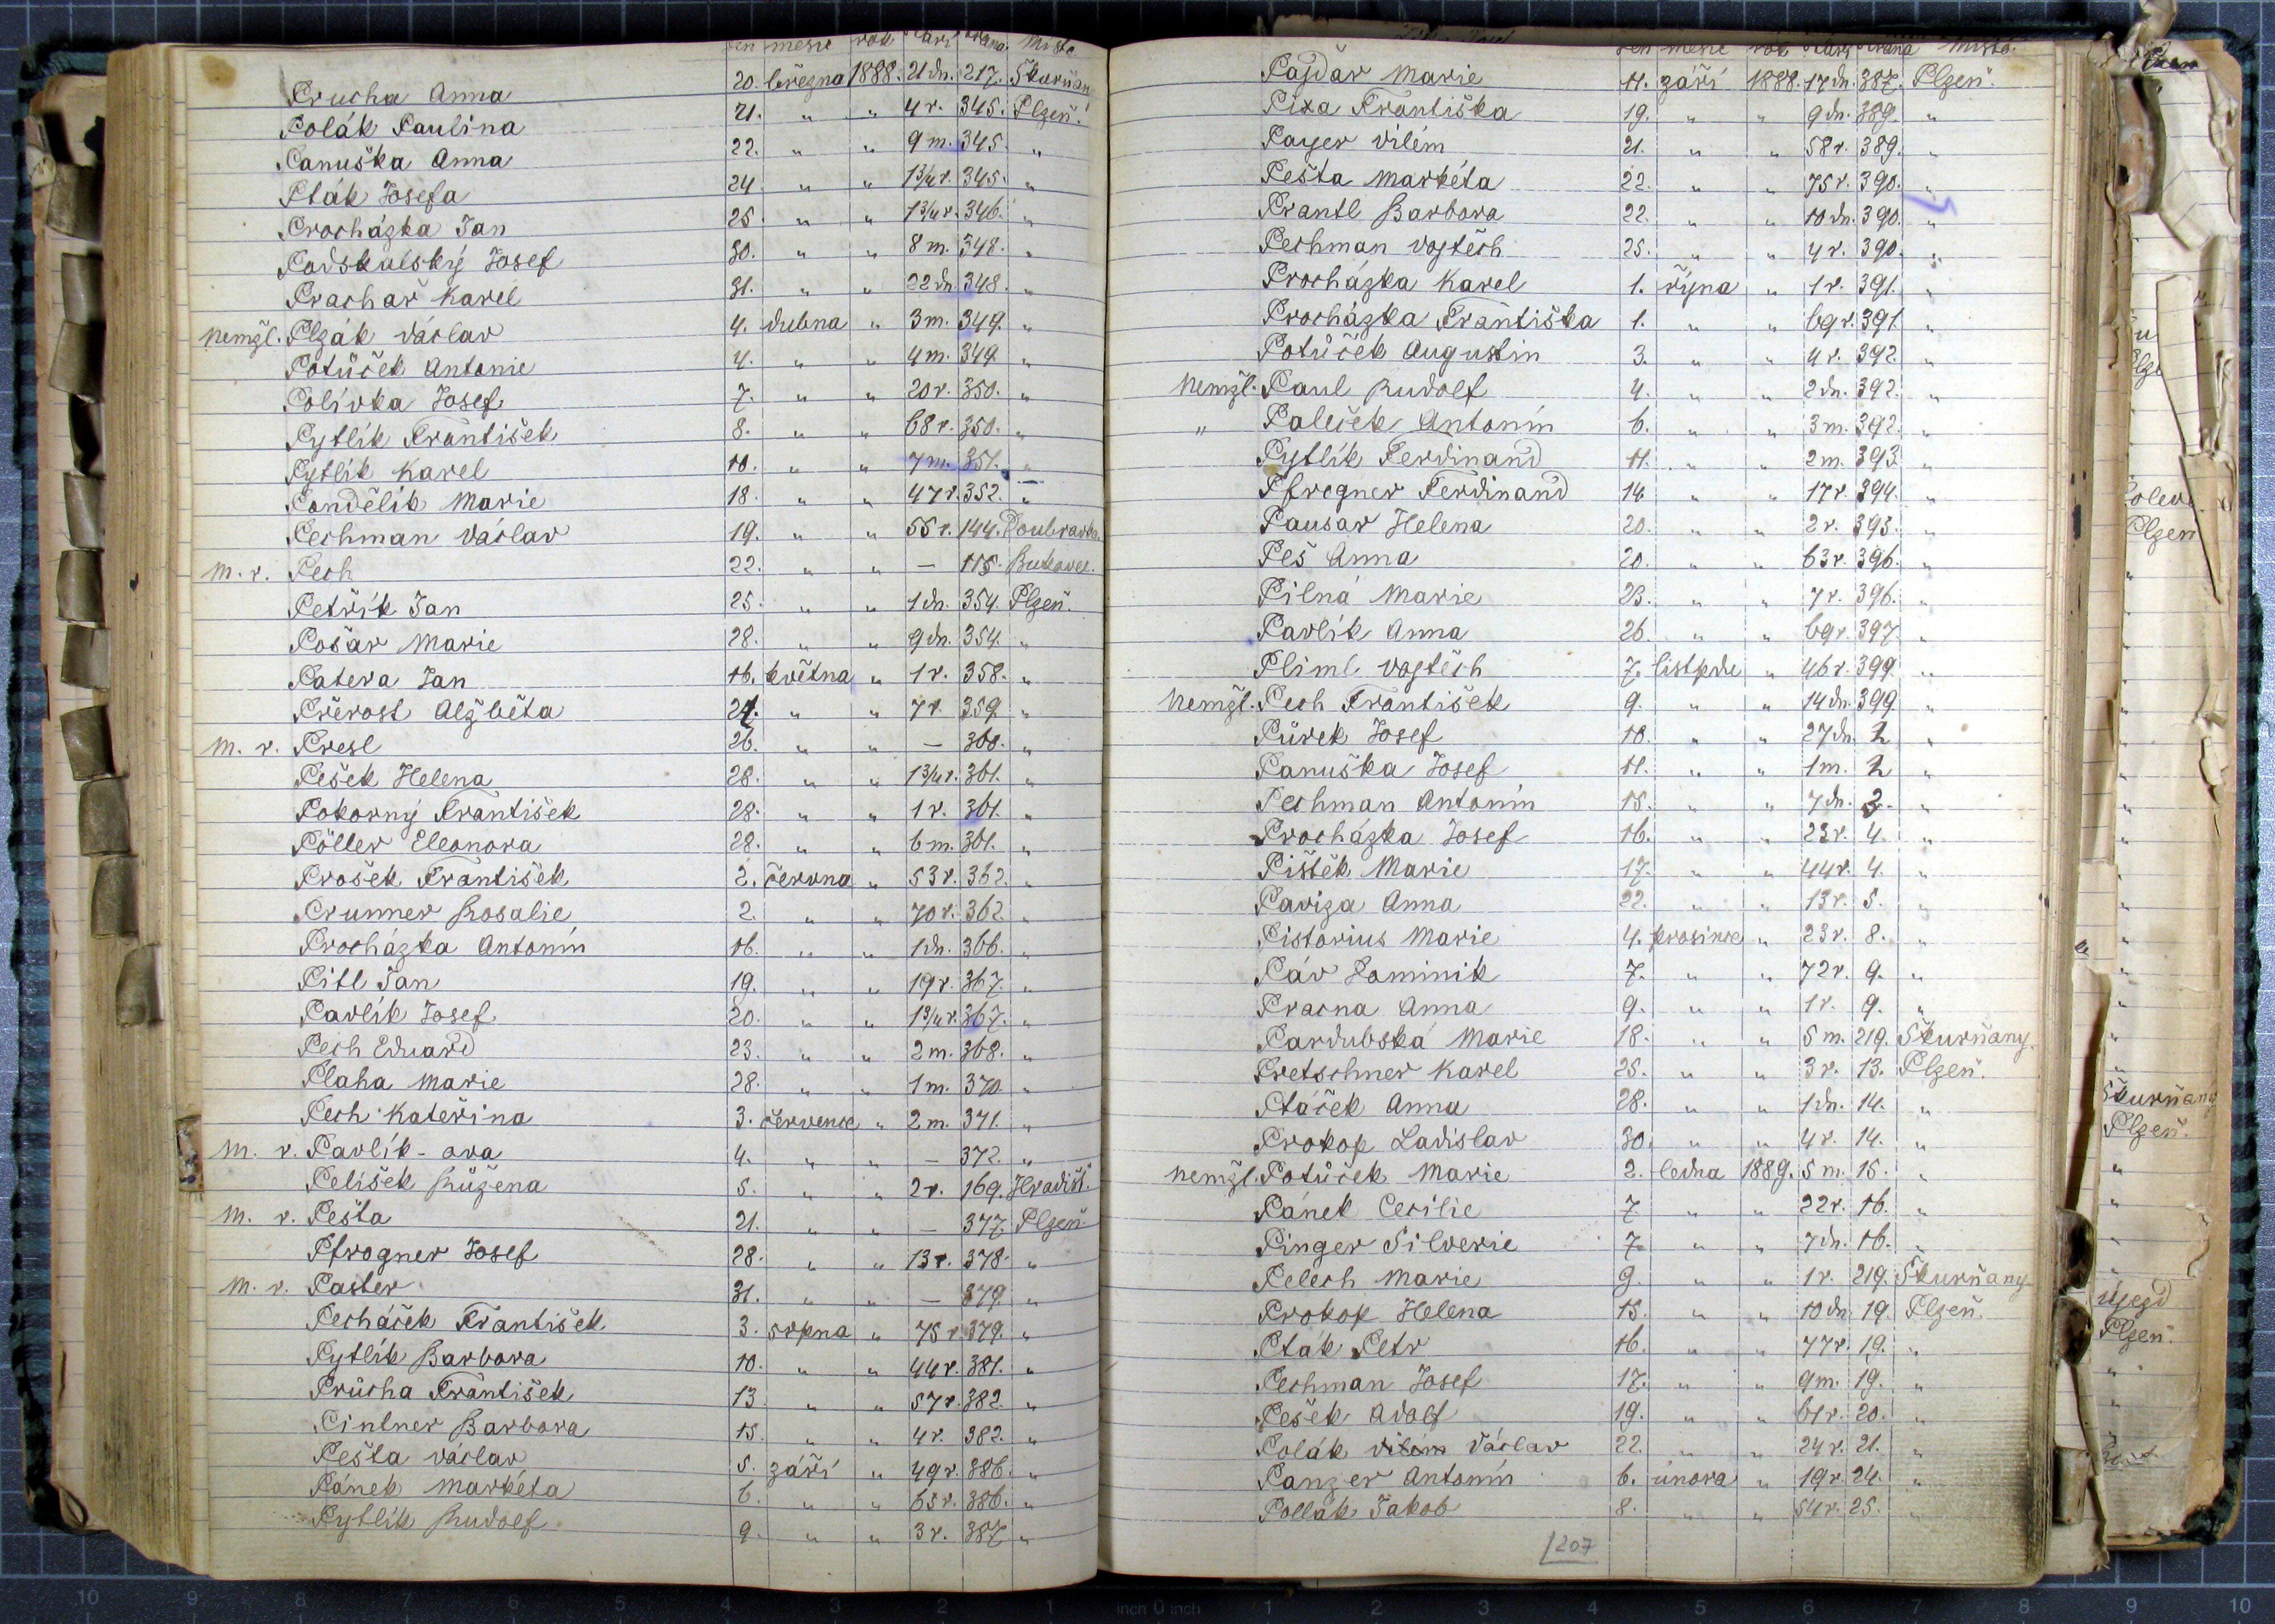 den měsíc rok stáří strana Místo
Prucha Anna 20. března 1888. 21 dn. 217. Škurňan
Polák Paulina 21. " " 4 r. 345. Plzeň.
Panuška Anna 22. " " 9 m. 345. "
Pták Josefa 24 " " 1 3/4 r. 345. "
Procházka Jan 25. " " 1 3/4 r. 346. "
Podskalský Josef 30. " " 8 m. 348. "
Prachař Karel 31. " " 22 dn. 348. "
nemžl. Plzák Václav 4. dubna " 3 m. 349. "
Potůček Antonie 4. " " 4 m. 349. "
Polívka Josef 7. " " 20 r. 350. "
Pytlík František 8. " " 68 r. 350. "
Pytlík Karel 10. " " 7 m. 351. "
Pondělík Marie 18. " " 47 r. 352. "
Pechman Václav 19. " " 55 r. 144. Doubravka.
m. r. Pech 22. " " — 115. Bukovec.
Petřík Jan 25. " " 1 dn. 354. Plzeň.
Pošar Marie 28. " " 9 dn. 354. "
Patera Jan 16. května " 1 r. 358. "
Přerost Alžběta 24. " " 7 r. 359. "
m. r. Presl 26. " " — 360. "
Pešek Helena 28. " " 1 3/4 r. 361. "
Pokorný František 28. " " 1 r. 361. "
Pöller Eleonora 28. " " 6 m. 361. "
Prošek František 2. června " 53 r. 362. "
Prunner Rosalie 2. " " 70 r. 362. "
Procházka Antonín 16. " " 1 dn. 366. "
Pitl Jan 19. " " 19 r. 367. "
Pavlík Josef 20. " " 1 3/4 r. 367. "
Pech Eduard 23. " " 2 m. 368. "
Plaha Marie 28. " " 1 m. 370. "
Pech Kateřina 3. července " 2 m. 371. "
m. r. Pavlík-ova 4. " " — 372. "
Pelišek Růžena 5. " " 2 r. 169. Hradišť.
m. r. Pešta 21. " " — 377. Plzeň.
Pfrogner Josef 28. " " 13 r. 378. "
m. r. Paster 31. " " — 379. "
Pecháček František 3. srpna " 75 r. 379. "
Pytlík Barbora 10. " " 44 r. 381. "
Průcha František 13 " " 57 r. 382. "
Pintner Barbora 15. " " 4 r. 382. "
Pešta Václav 5. září " 49 r. 386. "
Pánek Markéta 6. " " 65 r. 386. "
Pytlík Rudolf 9. " " 3 r. 387 "
den měsíc rok stáří strana Místo.
Pajdar Marie 11. září 1888. 17 dn. 387. Plzeň.
Pixa Františka 19. " " 9 dn. 389. "
Payer Vilém 21. " " 58 r. 389. "
Pešta Markéta 22. " " 75 r. 390. "
Prantl Barbora 22. " " 10 dn. 390. "
Pechman Vojtěch 25. " " 4 r. 390. "
Procházka Karel 1. října " 1 r. 391. "
Procházka Františka 1. " " 69 r. 391. "
Potůček Augustin 3. " " 4 r. 392. "
nemžl. Paul Rudolf 4. " " 2 dn. 392. "
" Paleček Antonín 6. " " 3 m. 392. "
Pytlík Ferdinand 11. " " 2 m. 393. "
Pfrogner Ferdinand 14 " " 17 r. 394. "
Pausar Helena 20. " " 2 r. 395. "
Peš Anna 20. " " 63 r. 396. "
Pilná Marie 23. " " 7 r. 396. "
Pavlík Anna 26. " " 69 r. 397. "
Pliml Vojtěch 7. listpdu " 46 r. 399. "
nemžl. Pech František 9. " " 14 dn. 399. "
Půrek Josef 10. " " 27 dn. 2 "
Panuška Josef 11. " " 1 m. 2 "
Pechman Antonín 15. " " 7 dn. 3. "
Procházka Josef 16. " " 23 r. 4. "
Pištěk Marie 17. " " 44 r. 4. "
Paviza Anna 22. " " 13 r. 5. "
Pistorius Marie 4. prosince " 23 r. 8. "
Páv Dominik 7. " " 72 r. 9. "
Pracna Anna 9. " " 1 r. 9. "
Pardubská Marie 18. " " 5 m. 219. Škurňany.
Pretschner Karel 25. " " 3 r. 13. Plzeň.
Ptáček Anna 28. " " 1 dn. 14. "
Prokop Ladislav 30. " " 4 r. 14. "
nemžl. Potůček Marie 2. ledna 1889. 5 m. 15. "
Pánek Cecilie 7 " " 22 r. 16. "
Pinger Silverie 7. " " 7 dn. 16. "
Pelech Marie 9. " " 1 r. 219. Škurňany
Prokop Helena 15. " " 10 dn. 19. Plzeň.
Pták Petr 16. " " 77 r. 19. "
Pechman Josef 17. " " 9 m. 19. "
Pešek Adolf 19. " " 61 r. 20. "
Polák Vilém Václav 22. " " 24 r. 21. "
Panzer Antonín 6. února " 19 r. 24. "
Pollak Jakob 8. " " 54 r. 25. "
207
Plzeň
Škurňany
Plzeň.
Újezd
Plzeň.